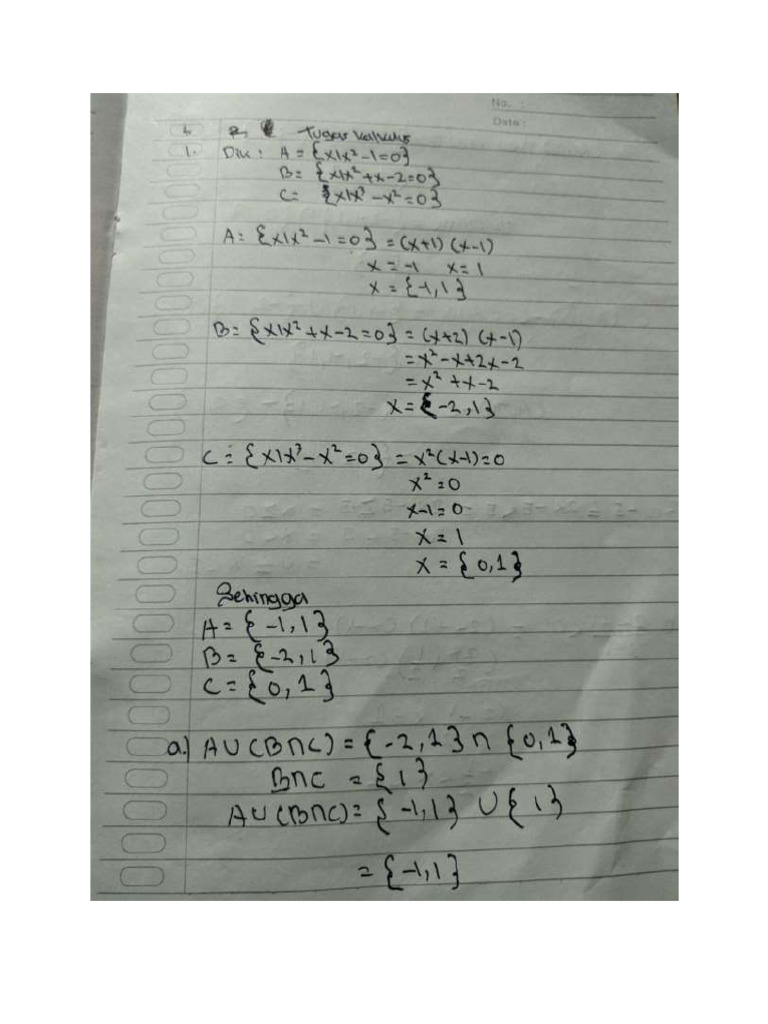 No. :
Date :
Tugas kalkulus
1. Dik : A = {x|x² - 1 = 0}
B = {x|x² + x - 2 = 0}
C = {x|x³ - x² = 0}
A = {x|x² - 1 = 0} = (x+1) (x-1)
x = -1 x = 1
x = {-1, 1}
B = {x|x² + x - 2 = 0} = (x+2) (x-1)
= x² - x + 2x - 2
= x² + x - 2
x = {-2, 1}
C = {x|x³ - x² = 0} = x²(x-1) = 0
x² = 0
x - 1 = 0
x = 1
x = {0, 1}
Sehingga
A = {-1, 1}
B = {-2, 1}
C = {0, 1}
a.) A∪(B∩C) = {-2, 1} ∩ {0, 1}
B∩C = {1}
A∪(B∩C) = {-1, 1} ∪ {1}
= {-1, 1}